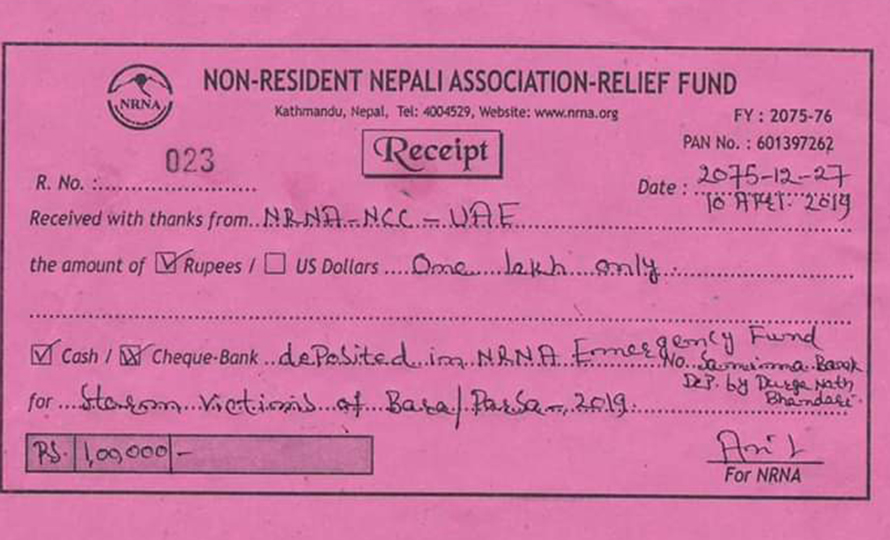 NRNA
NON-RESIDENT NEPALI ASSOCIATION-RELIEF FUND
Kathmandu, Nepal, Tel: 4004529, Website: www.nrna.org
FY : 2075-76
PAN No. : 601397262
Receipt
R. No. : 023
Date : 2075-12-27
10 APRIL 2019
Received with thanks from NRNA-NCC-UAE
the amount of ☑ Rupees / ☐ US Dollars One lakh only.
☑ Cash / ☒ Cheque-Bank deposited in NRNA Emergency Fund
No. Bank
DeP. by Durga Nath
Bhandari
for Storm victims of Bara/Parsa-2019.
RS. 1,00,000/-
For NRNA